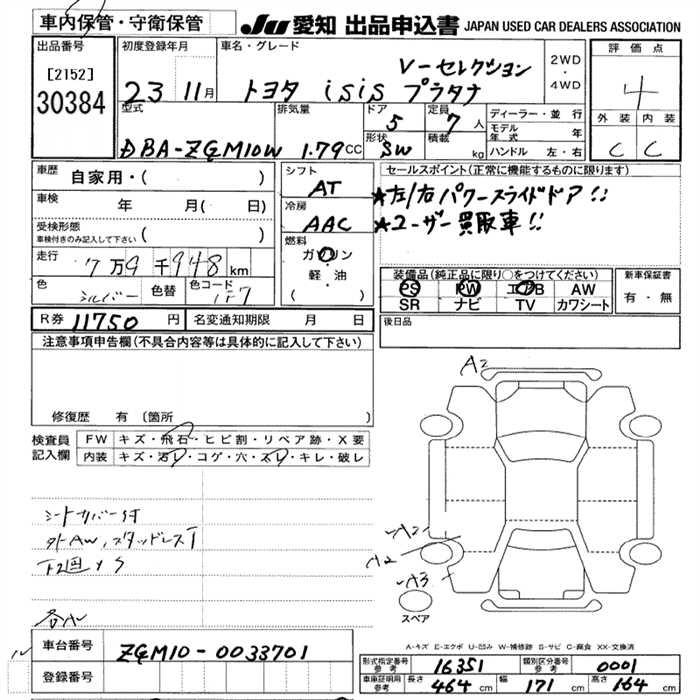 車内保管・守衛保管
JU 愛知 出品申込書 JAPAN USED CAR DEALERS ASSOCIATION
出品番号
[2152]
30384
初度登録年月
23 11月
車名・グレード
トヨタ isis プラタナ
V-セレクション
2WD
・
4WD
評価点
4
外装 内装
C C
型式
DBA-ZGM10W
排気量
1.79CC
ドア
5
定員
7人
形状
SW
積載
kg
ディーラー・並行
モデル年式 年
ハンドル 左・右
車歴
自家用・( )
車検
年 月( 日)
受検形態
車検付きのみ記入して下さい
( )
走行
7万9千948km
色
シルバー
色替
色コード
1F7
シフト
AT
冷房
AAC
燃料
ガソリン
軽・油
( )
セールスポイント(正常に機能するものに限ります)
★左/右パワースライドドア!!
★ユーザー買取車!!
装備品(純正品に限り○をつけてください)
PS PW エアB AW
SR ナビ TV カワシート
新車保証書
有・無
後日品
R券 11750円
名変通知期限 月 日
注意事項申告欄(不具合内容等は具体的に記入して下さい)
修復歴 有〔箇所 〕
検査員記入欄
FW キズ・飛石・ヒビ割・リペア跡・X要
内装 キズ・汚レ・コゲ・穴・スレ・キレ・破レ
シートカバー付
外AW、スタッドレスT
A2
A2
A2
A3
スペア
A-キズ E-エクボ U-凹み W-補修跡 S-サビ C-腐食 XX-交換済
車台番号
ZGM10-0033701
登録番号
形式指定番号
参考
16351
類別区分番号
参考
0001
車庫証明用
参考
長さ 464cm 幅 171cm 高さ 164cm